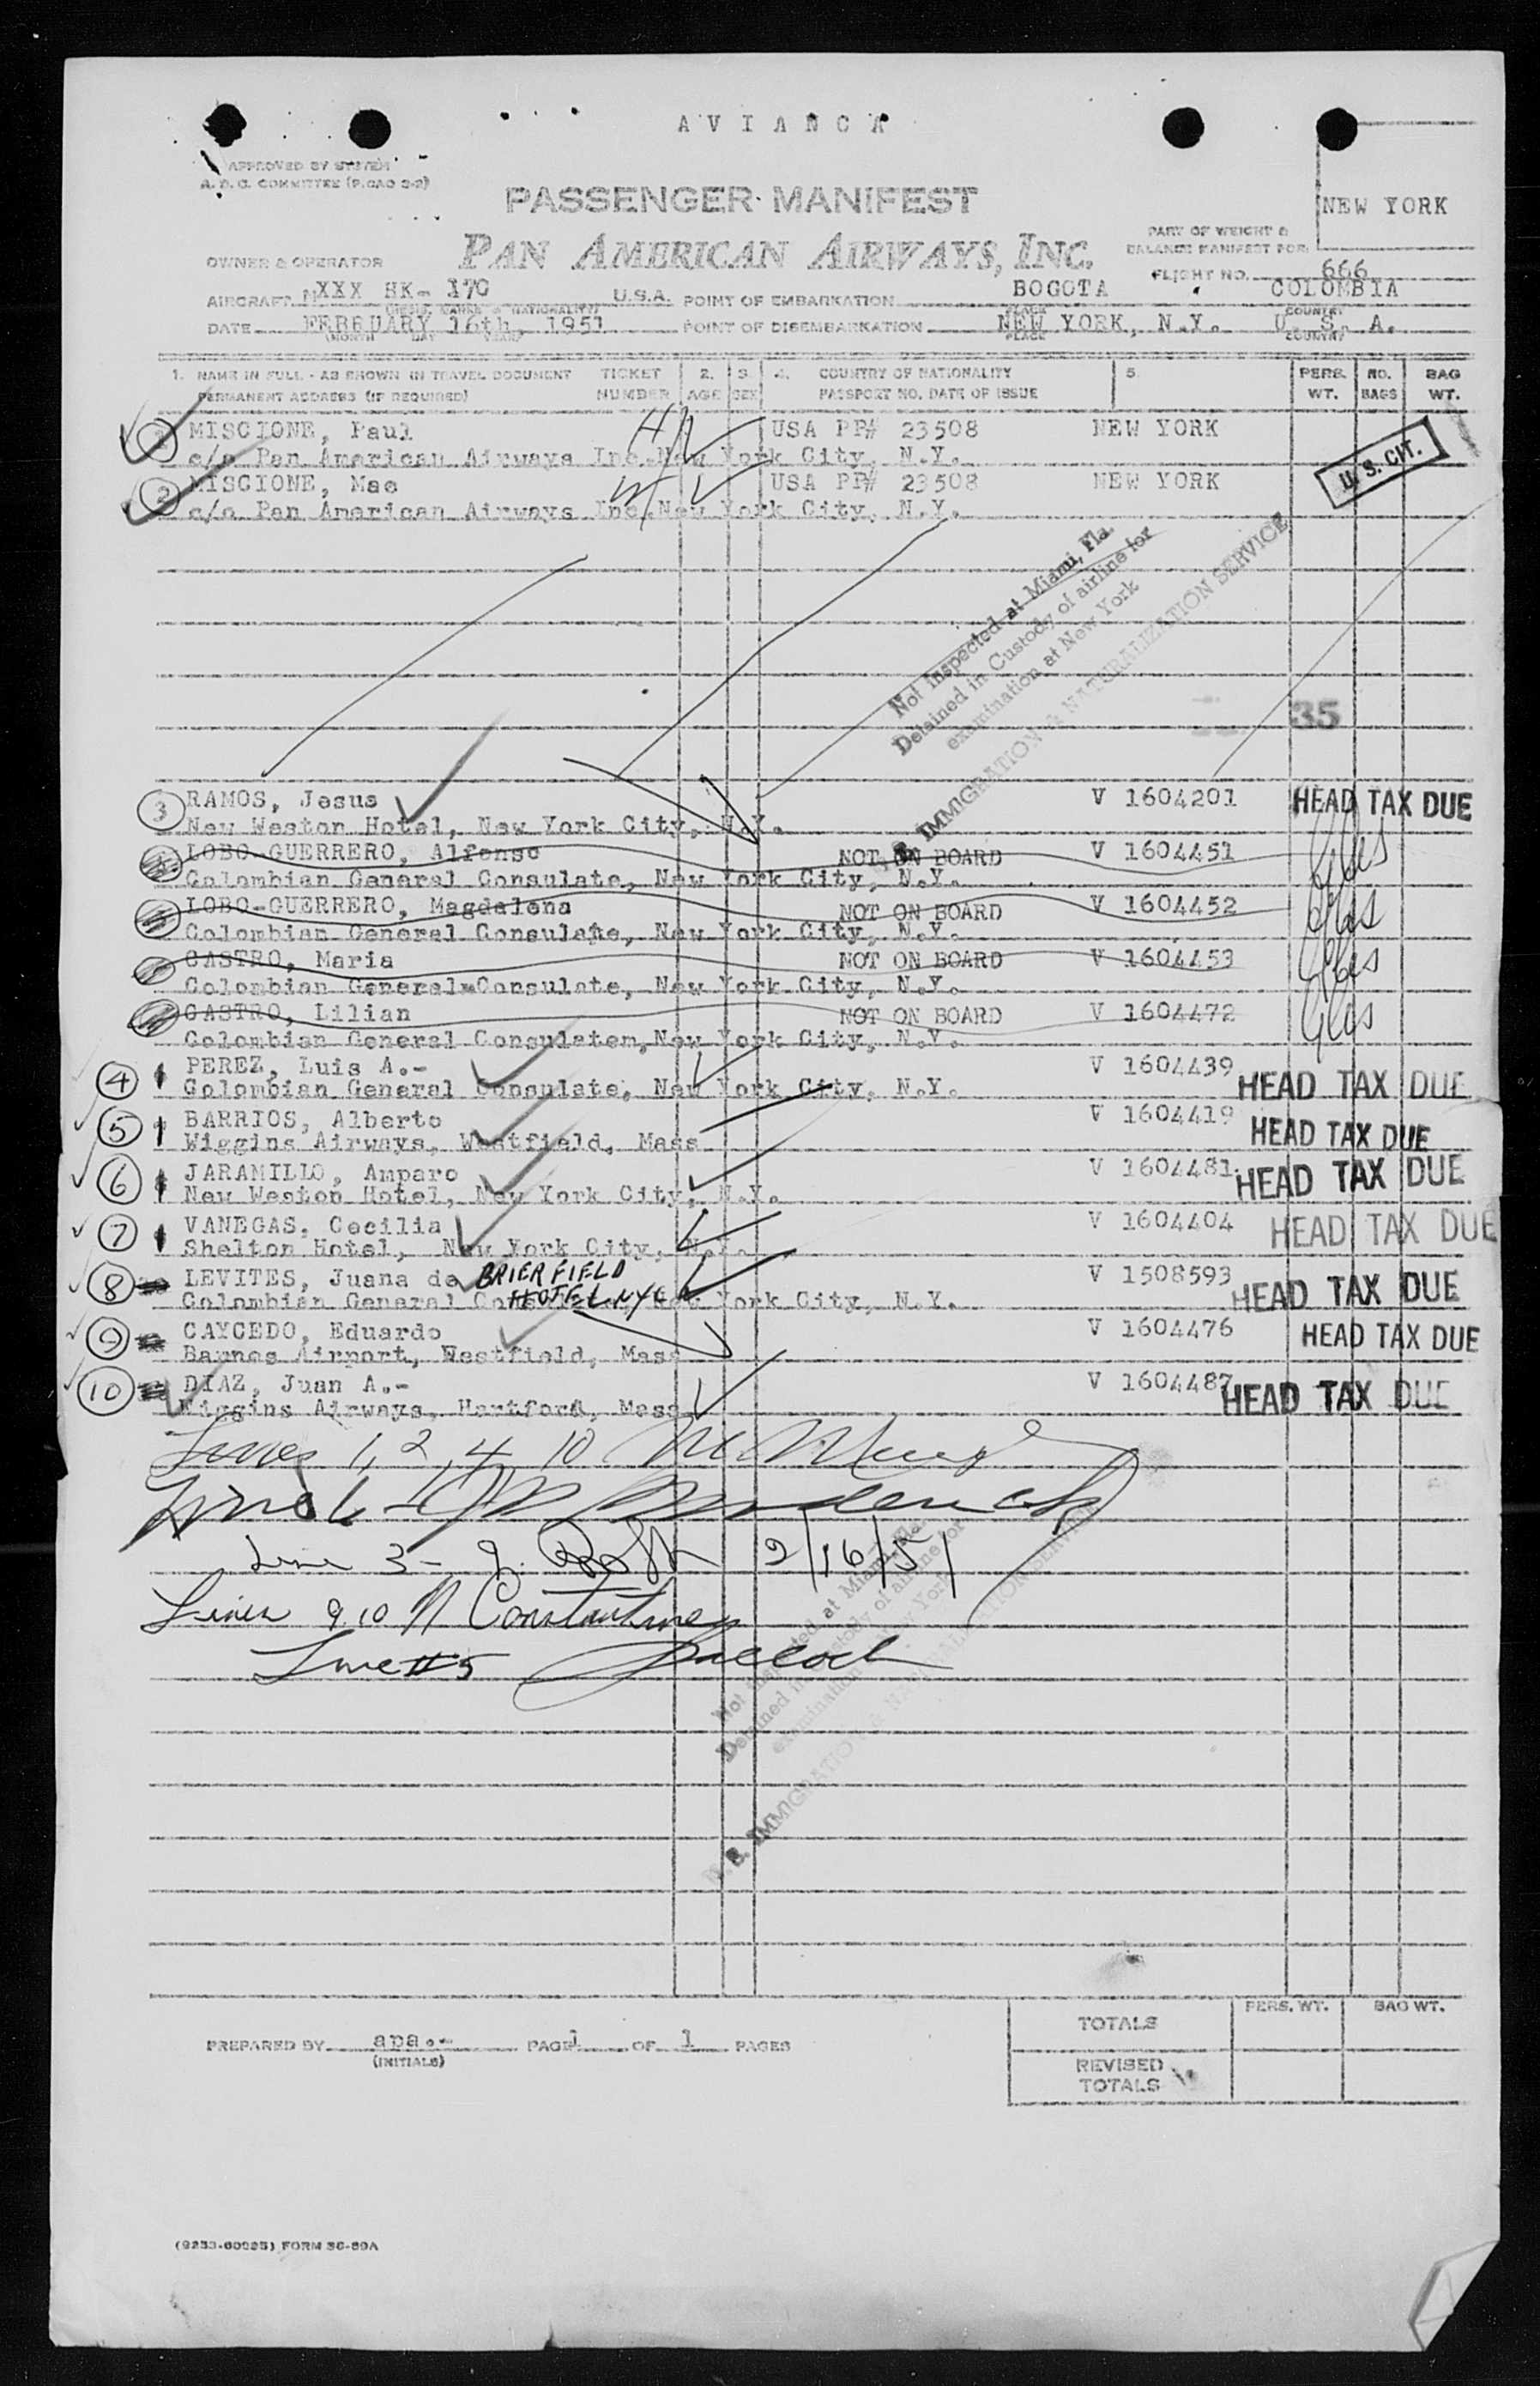 AVIANCA
APPROVED BY SYSTEM
A. D. C. COMMITTEE (P.CAO 2-2)
PASSENGER MANIFEST
NEW YORK
PART OF WEIGHT &
BALANCE MANIFEST FOR
PAN AMERICAN AIRWAYS, INC.
OWNER & OPERATOR
FLIGHT NO. 666
AIRCRAFT NXXX HK- 170 U.S.A. POINT OF EMBARKATION BOGOTA COLOMBIA
PLACE COUNTRY
DATE FEBRUARY 16th, 1951 POINT OF DISEMBARKATION NEW YORK, N.Y. U. S. A.
(MONTH DAY YEAR) PLACE COUNTRY
1. NAME IN FULL - AS SHOWN IN TRAVEL DOCUMENT TICKET 2. 3. 4. COUNTRY OF NATIONALITY 5. PERS. NO. BAG
PERMANENT ADDRESS (IF REQUIRED) NUMBER AGE SEX PASSPORT NO. DATE OF ISSUE WT. BAGS WT.
1 MISCIONE, Paul USA PP# 23508 NEW YORK
c/o Pan American Airways Inc.New York City, N.Y.
U. S. CIT.
2 MISCIONE, Mae USA PP# 23508 NEW YORK
c/o Pan American Airways Inc.New York City, N.Y.
Not inspected at Miami, Fla.
Detained in Custody of airline for
examination at New York
U. S. IMMIGRATION & NATURALIZATION SERVICE
35
3 RAMOS, Jesus V 1604201 HEAD TAX DUE
New Weston Hotel, New York City, N.Y.
LOBO-GUERRERO, Alfonso NOT ON BOARD V 1604451
Colombian General Consulate, New York City, N.Y.
LOBO-GUERRERO, Magdalena NOT ON BOARD V 1604452
Colombian General Consulate, New York City, N.Y.
CASTRO, Maria NOT ON BOARD V 1604453
Colombian General Consulate, New York City, N.Y.
CASTRO, Lilian NOT ON BOARD V 1604472
Colombian General Consulatem, New York City, N.Y.
4 PEREZ, Luis A.- V 1604439 HEAD TAX DUE
Colombian General Consulate, New York City, N.Y.
5 BARRIOS, Alberto V 1604419 HEAD TAX DUE
Wiggins Airways, Westfield, Mass
6 JARAMILLO, Amparo V 1604481 HEAD TAX DUE
New Weston Hotel, New York City, N.Y.
7 VANEGAS, Cecilia V 1604404 HEAD TAX DUE
Shelton Hotel, New York City, N.Y.
8 LEVITES, Juana de BRIERFIELD V 1508593 HEAD TAX DUE
Colombian General HOTEL NYC New York City, N.Y.
9 CAYCEDO, Eduardo V 1604476 HEAD TAX DUE
Barnes Airport, Westfield, Mass
10 DIAZ, Juan A.- V 1604487 HEAD TAX DUE
Wiggins Airways, Hartford, Mass
Lines 1, 2, 4, 10
Line 3 - 2/16/51
Lines 9.10 N Constantine
Line #5
Not inspected at Miami, Fla.
Detained in Custody of airline for
examination at New York
U. S. IMMIGRATION & NATURALIZATION SERVICE
PERS. WT. BAG WT.
TOTALS
PREPARED BY apa.- PAGE 1 OF 1 PAGES
(INITIALS)
REVISED
TOTALS
(9253-60925) FORM 36-89A